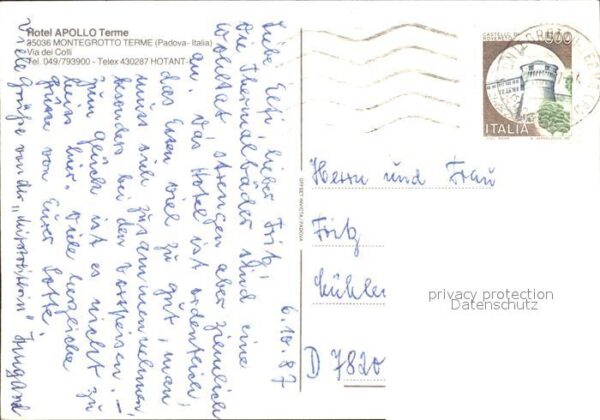 Hotel APOLLO Terme
35036 MONTEGROTTO TERME (Padova - Italia)
Via dei Colli
Tel. 049/793900 - Telex 430287 HOTANT-I
6.10.87
Liebe Elfi, lieber Fritz!
Die Thermalbäder sind eine
Wohltat strengen aber ziemlich
an. Das Hotel ist ordentlich
das Essen viel zu gut, man
muss sich zusammennehmen
besonders bei den Vorspeisen. -
Zum Glück ist es nicht zu
heiss hier. Viele herzliche
Grüsse von Eurer Lotte
Viele Grüße von der Irmgard
OFFSET INVICTA - PADOVA
CASTELLO DI
ROVERETO
500
ITALIA
Herrn und Frau
Fritz
Kühler
D 7820
privacy protection
Datenschutz